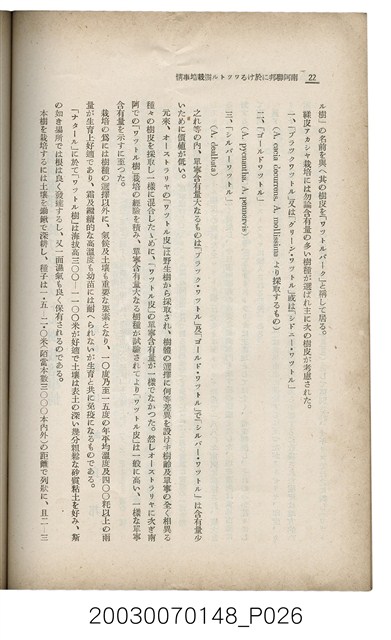 22 南阿聯邦に於けるワットル樹栽培事情
ル樹」の名前を與へ其の樹皮を「ワットルバーク」と稱して居る。
緑皮アカシヤ栽培には勿論含有量の多い樹種が選ばれ主に次の樹皮が考慮された。
一、「ブラックワットル」又は「グリーン・ワットル」或は「シドニー・ワットル」
(A. decurrens, A. mollissima より採取するもの)
二、「ゴールドワットル」
(A. pycnantha, A. pennervis)
三、「シルバーワットル」
(A. dealbata)
之れ等の内、單寧含有量大なるものは「ブラック・ワットル」及「ゴールド・ワットル」で「シルバー・ワットル」は含有量少
いために價値が低い。
元來、オーストラリヤの「ワットル皮」は野生樹から採取され、樹體の選擇に何等差異を設けず樹齡及單寧の全く相異る
種々の樹皮を採取し一樣に混合したゝめに、「ワットル皮」の單寧含有量が一樣でなかつた。然しオーストラリヤに次ぎ南
阿での「ワットル樹」栽培の經驗を積み、單寧含有量大なる樹種が試驗されてより「ワットル皮」は一般に高い、一樣な單寧
含有量を示すに至つた。
栽培の爲には樹種の選擇以外に、氣候及土壤も重要な要素となり、一〇度乃至一五度の年平均溫度及四〇〇粍以上の雨
量が生育上好適であり、霜及繼續的な高溫度も幼苗には耐へられないが生育と共に免疫になるものである。
「ナタール」に於て「ワットル樹」は海拔高三〇〇―一一〇〇米が好適で土壤は表土の深い幾分粗鬆な砂質粘土を好み、斯
の如き場所では根は良く發達するし、又一面濕氣も良く保有されるのである。
本樹を栽培するには土壤を鋤鍬で深耕し、種子は一・五―二・〇米(陌當本數三〇〇〇本內外)の距離で列狀に、且二―三
20030070148_P026